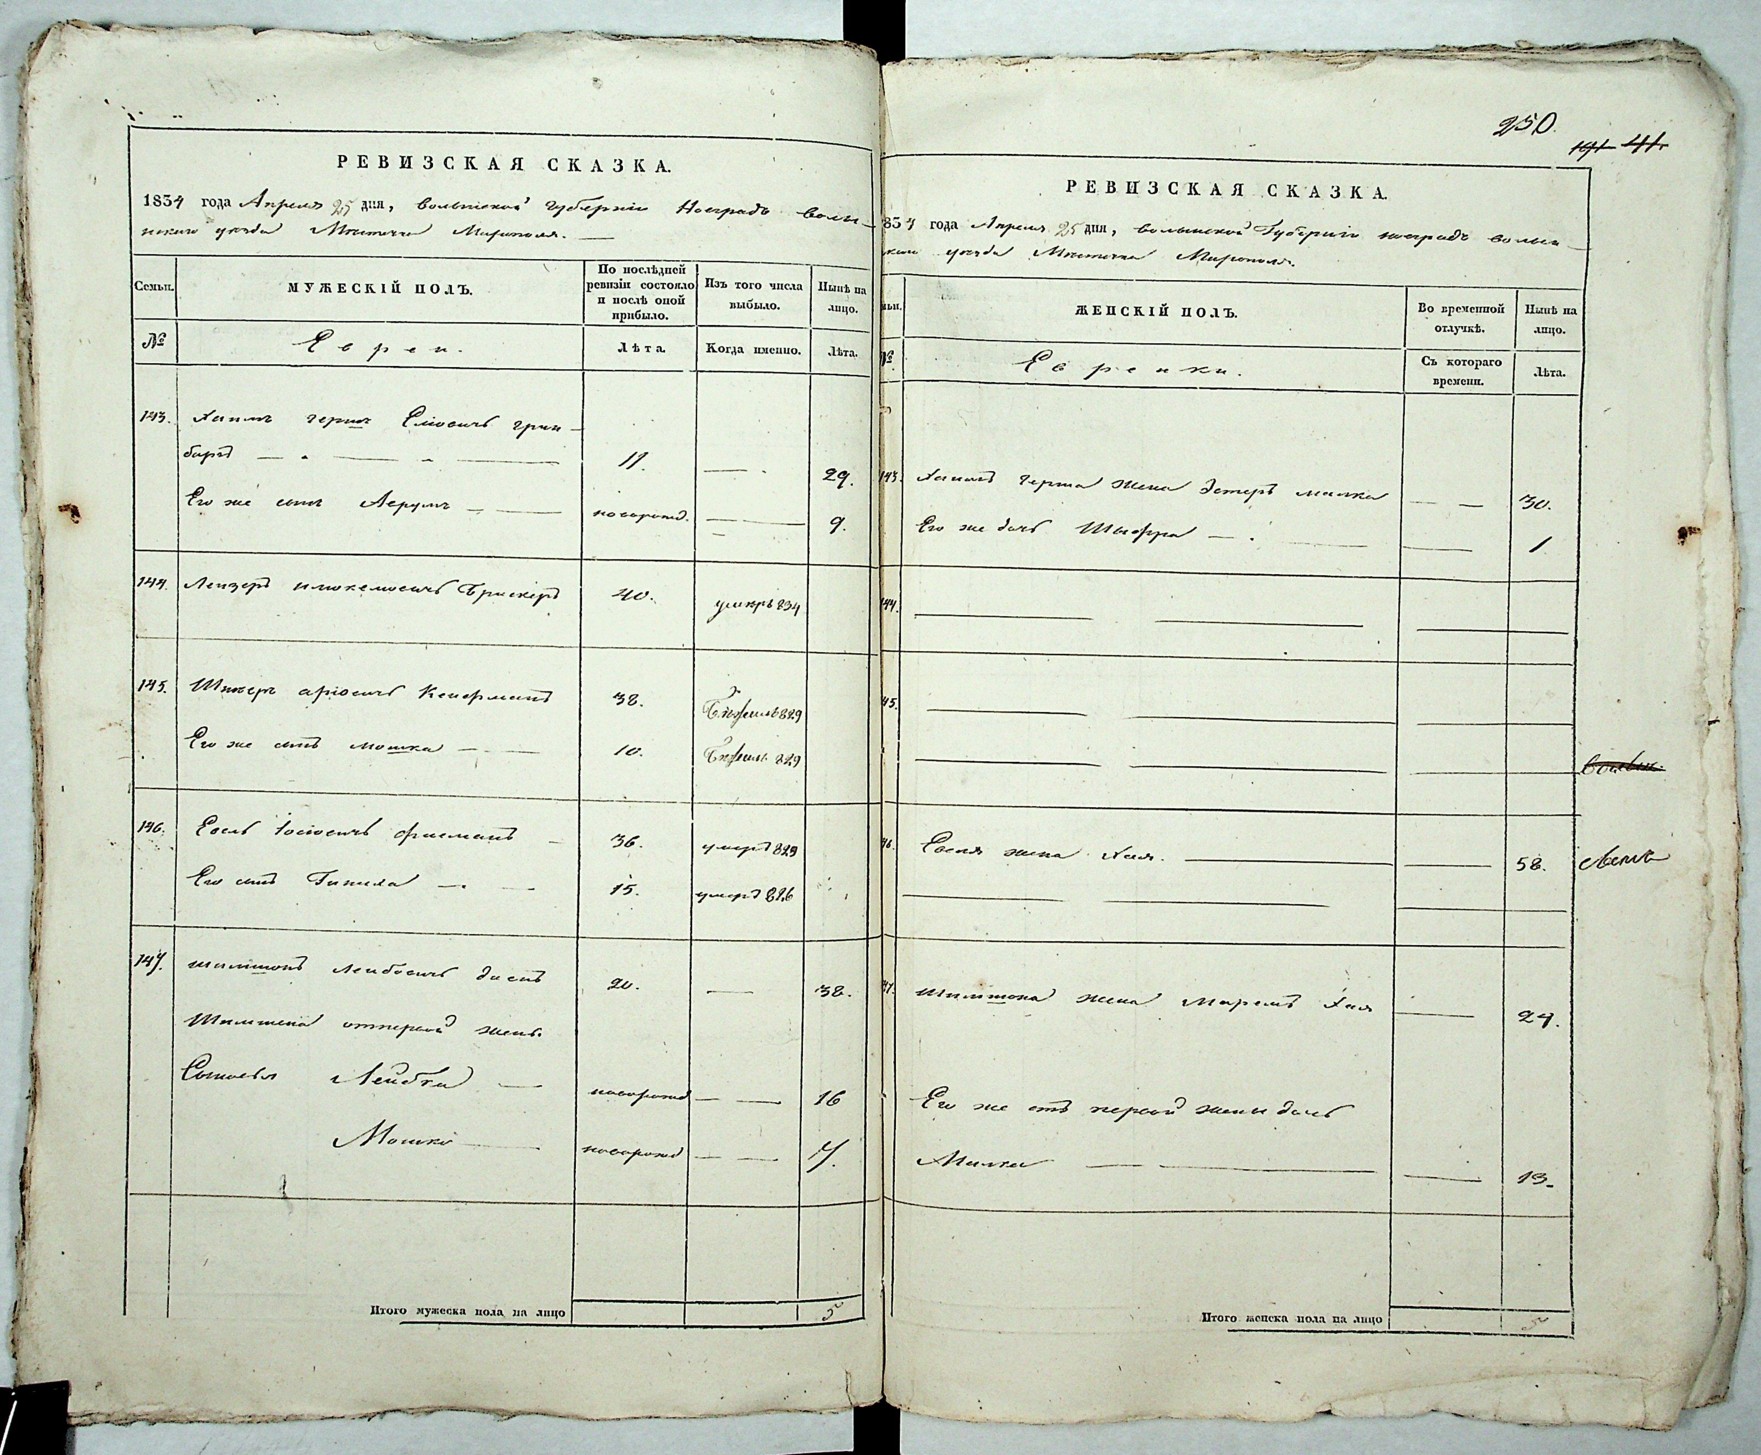 РЕВИЗСКАЯ СКАЗКА.
1834 года Апреля 25 дня, волынской губернии Новградъ волын-
скаго уезда Местечка Мирополя.
Семьи.
МУЖЕСКІЙ ПОЛЪ.
По послѣдней ревизіи состояло и послѣ оной прибыло.
Изъ того числа выбыло.
Нынѣ на лицо.
№
Евреи.
Лѣта.
Когда именно.
Лѣта.
143. Хаимъ герш Еліовичъ грин-
баръ 11. 29.
Его же сынъ Аврумъ новорожд. 9.
144. Лейзеръ Брискеръ 40. умеръ 834
145. аріовичъ Кейсерманъ 38. 829
Его же сынъ мошка 10. 829
146. Евель Іосіовичъ фисманъ 36. умеръ 829
Его сынъ 15. умеръ 826
147. шимшонъ лейбовичъ 20. 38.
Шимшона отпервой жены
Сыновья Лейбка новорожд 16
Мошко новорожд 7.
Итого мужеска пола на лицо 5
250.
191 41.
РЕВИЗСКАЯ СКАЗКА.
834 года Апреля 25 дня, волынской Губерніи новградъ волын-
скаго уезда Местечка Мирополя.
ЖЕНСКІЙ ПОЛЪ.
Во временной отлучкѣ.
Нынѣ на лицо.
№
Еврейки.
Съ котораго времени.
Лѣта.
143. Хаимъ герша жена Эстеръ малка 30.
Его же дочь Шифра 1
144.
45.
46. Евеля жена Хая. 58.
47. Шимшона жена Маремъ Хая 24.
Его же отъ первой жены дочь
Малка 13.
Итого женска пола на лицо 5